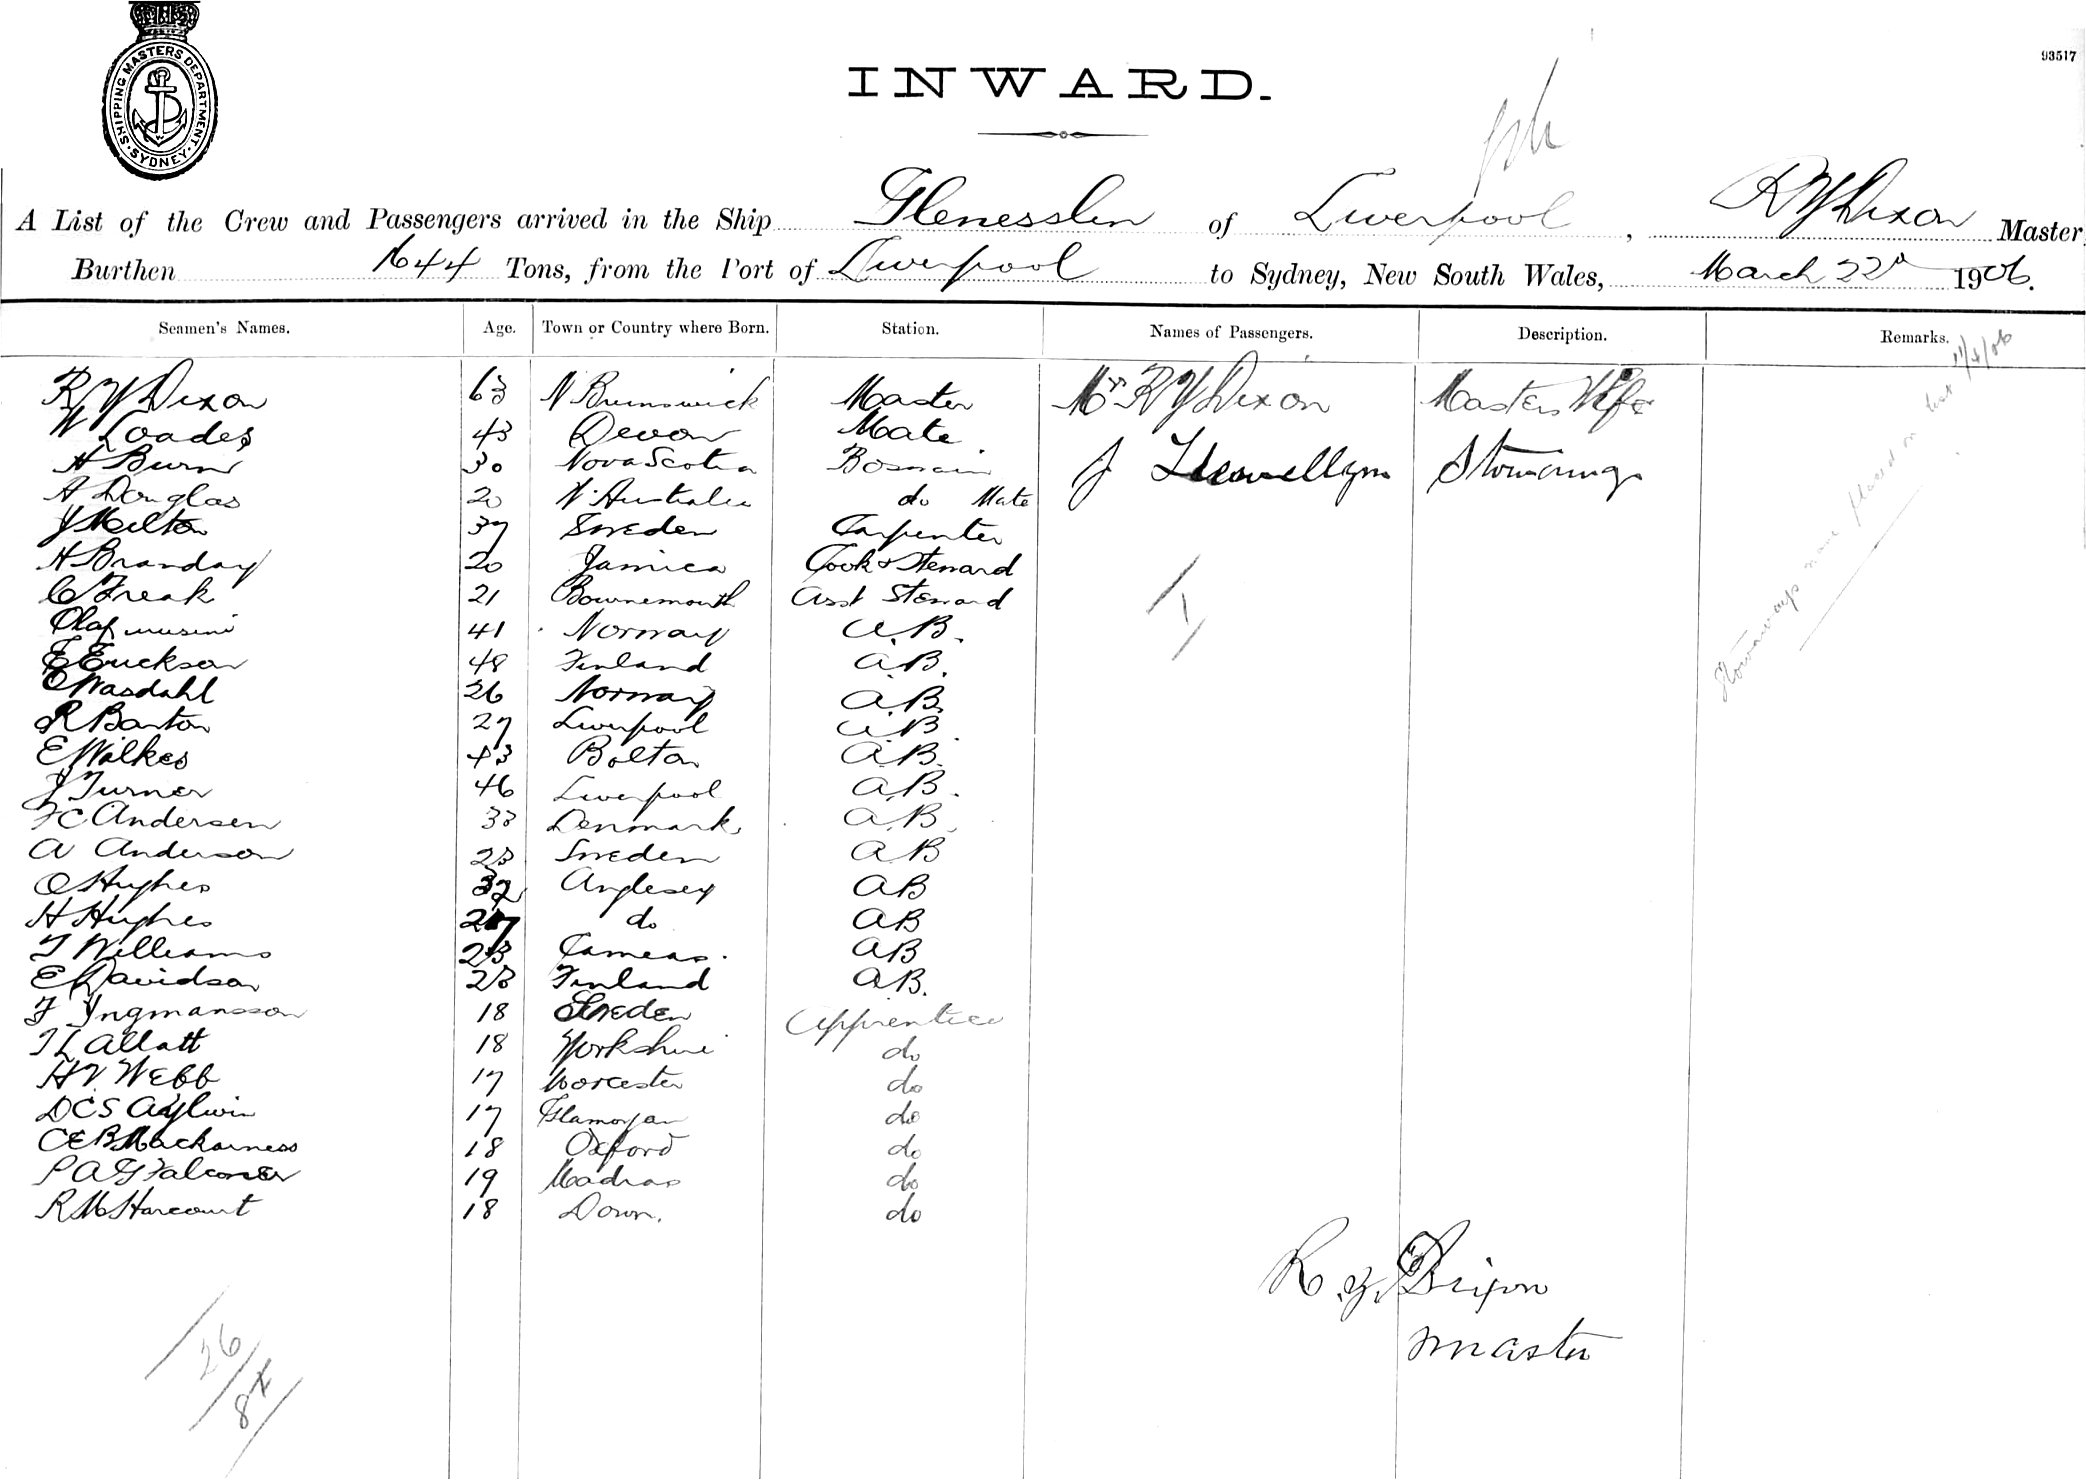 SHIPPING MASTERS DEPARTMENT. SYDNEY
93517
INWARD.
A List of the Crew and Passengers arrived in the Ship Glenesslin of Liverpool, R Y Dixon Master,
Burthen 1644 Tons, from the Port of Liverpool to Sydney, New South Wales, March 22d 1906.
Seamen's Names. Age. Town or Country where Born. Station. Names of Passengers. Description. Remarks.
R Y Dixon 63 N Brunswick Master Mrs R Y Dixon Masters Wife
W Loades 43 Devon Mate
H Burn 30 Nova Scotia Bosmain J Llewellyn Stowaway
A Douglas 20 W. Australia do Mate
J Melton 37 Sweden Carpenter
H Branday 20 Jamica Cook & Steward
C Freak 21 Bournemouth Asst Steward
Olaf 41 Norway A.B.
E Erickson 48 Finland A.B.
O Wasdahl 26 Norway A.B.
R Barton 27 Liverpool A B
E Wilkes 43 Bolton A.B.
J Turner 46 Liverpool A B.
F C Andersen 33 Denmark A B.
A Anderson 23 Sweden A B
O Hughes 32 Anglesey A B
H Hughes 27 do A B
T Williams 23 Cameas. A B
E Davidson 28 Finland A B.
F Yngmansson 18 Sweden Apprentice
T L Allatt 18 Yorkshire do
H V Webb 17 Worcester do
D C S Aylwin 17 Glamorgan do
C E B Mackarness 18 Oxford do
P A G Falconer 19 Madras do
R M Harcourt 18 Down. do
Stowaways name placed on list 11/4/06
1
R. Y. Dixon
Master
26
84